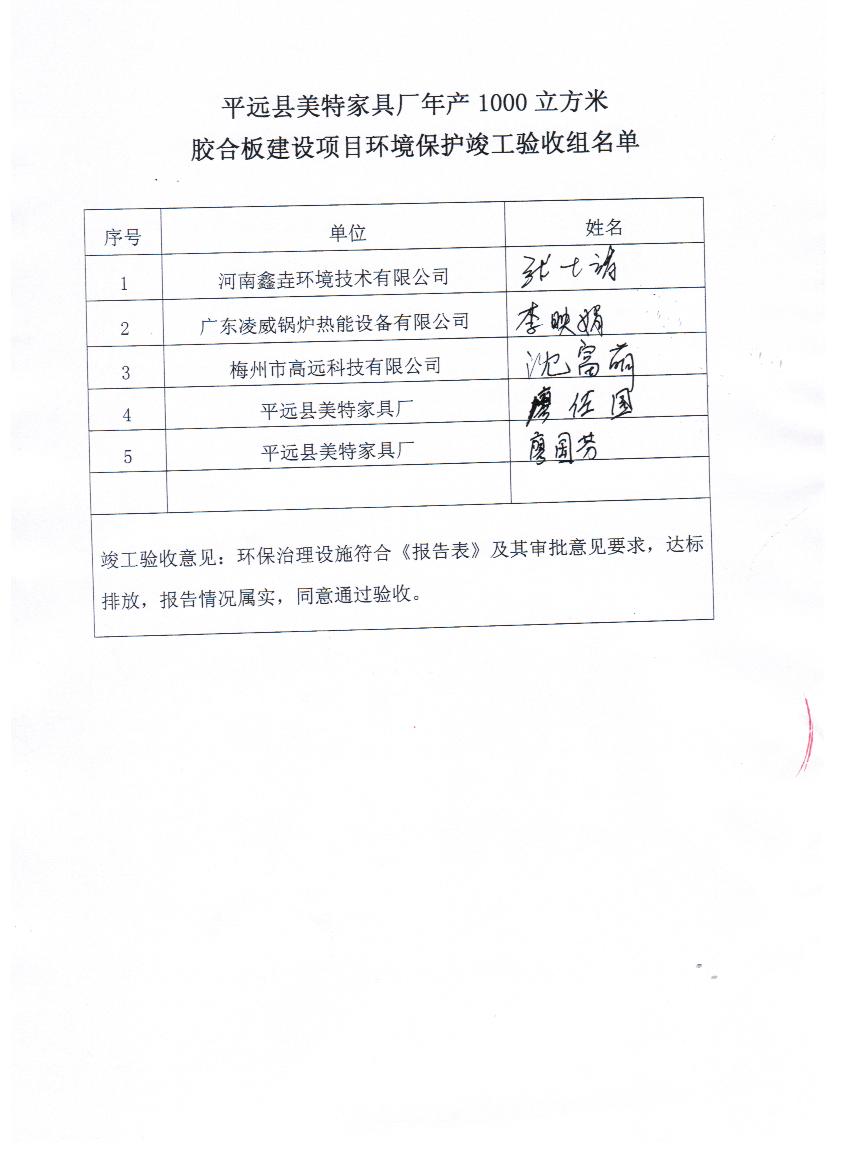 平远县美特家具厂年产 1000 立方米
胶合板建设项目环境保护竣工验收组名单
序号 单位 姓名
1 河南鑫垚环境技术有限公司 张士
2 广东凌威锅炉热能设备有限公司 李映娟
3 梅州市高远科技有限公司 沈富萌
4 平远县美特家具厂 廖伍国
5 平远县美特家具厂 廖国芳
竣工验收意见：环保治理设施符合《报告表》及其审批意见要求，达标
排放，报告情况属实，同意通过验收。